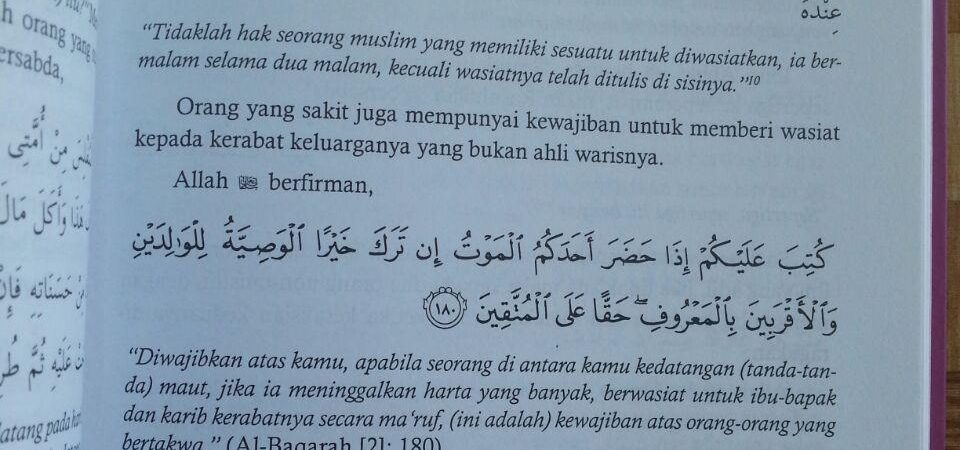 عِنْدَهُ
“Tidaklah hak seorang muslim yang memiliki sesuatu untuk diwasiatkan, ia ber-
malam selama dua malam, kecuali wasiatnya telah ditulis di sisinya.”10
Orang yang sakit juga mempunyai kewajiban untuk memberi wasiat
kepada kerabat keluarganya yang bukan ahli warisnya.
Allah ﷻ berfirman,
كُتِبَ عَلَيْكُمْ إِذَا حَضَرَ أَحَدَكُمُ ٱلْمَوْتُ إِن تَرَكَ خَيْرًا ٱلْوَصِيَّةُ لِلْوَٰلِدَيْنِ
وَٱلْأَقْرَبِينَ بِٱلْمَعْرُوفِ ۖ حَقًّا عَلَى ٱلْمُتَّقِينَ ١٨٠
“Diwajibkan atas kamu, apabila seorang di antara kamu kedatangan (tanda-tan-
da) maut, jika ia meninggalkan harta yang banyak, berwasiat untuk ibu-bapak
dan karib kerabatnya secara ma‘ruf, (ini adalah) kewajiban atas orang-orang yang
bertakwa.” (Al-Baqarah [2]: 180)